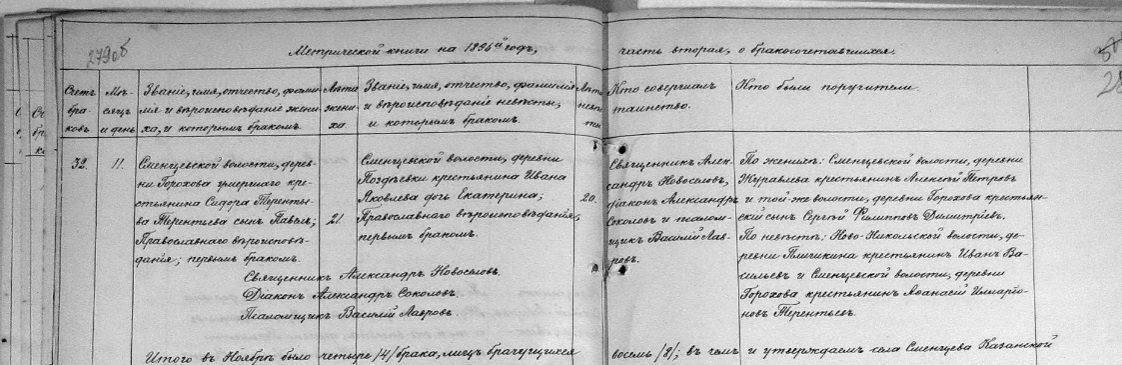 279об
Метрической книги на 1896й годъ,
часть вторая, о бракосочетавшихся.
Счетъ бра- ковъ.
Мѣ- сяцъ и день
Званіе, имя, отчество, фами-
лія и вѣроисповѣданіе жени-
ха, и которымъ бракомъ.
Лѣта жени- ха
Званіе, имя, отчество, фамилія
и вѣроисповѣданіе невѣсты,
и которымъ бракомъ.
Лѣта невѣ- сты
Кто совершалъ
таинство.
Кто были поручители.
32.
11.
Сменцевской волости, дерев-
ни Горохова умершаго кре-
стьянина Сидора Теренты-
ва Терентьева сынъ Павелъ;
Православнаго вѣроисповѣ-
данія; первымъ бракомъ.
21.
Сменцевской волости, деревни
Поздѣевки крестьянина Ивана
Яковлева дочь Екатерина;
Православнаго вѣроисповѣданія,
первымъ бракомъ.
20.
Священникъ Алек-
сандръ Новоселовъ,
діаконъ Александръ
Соколовъ и псалом-
щикъ Василій Лав-
ровъ.
По женихѣ: Сменцевской волости, деревни
Журавлева крестьянинъ Алексѣй Петровъ
и той-же волости, деревни Горохова крестьян-
скій сынъ Сергѣй Филипповъ Димитріевъ.
По невѣстѣ: Ново-Никольской волости, де-
ревни Пличикина крестьянинъ Иванъ Ва-
сильевъ и Сменцевской волости, деревни
Горохова крестьянинъ Аѳанасій Илларіо-
новъ Терентьевъ.
Священникъ Александръ Новоселовъ.
Діаконъ Александръ Соколовъ.
Псаломщикъ Василій Лавровъ.
Итого въ Ноябрѣ было четыре /4/ брака, лицъ брачущихся
восемь /8/; въ чемъ и утверждаемъ села Сменцева Казанской